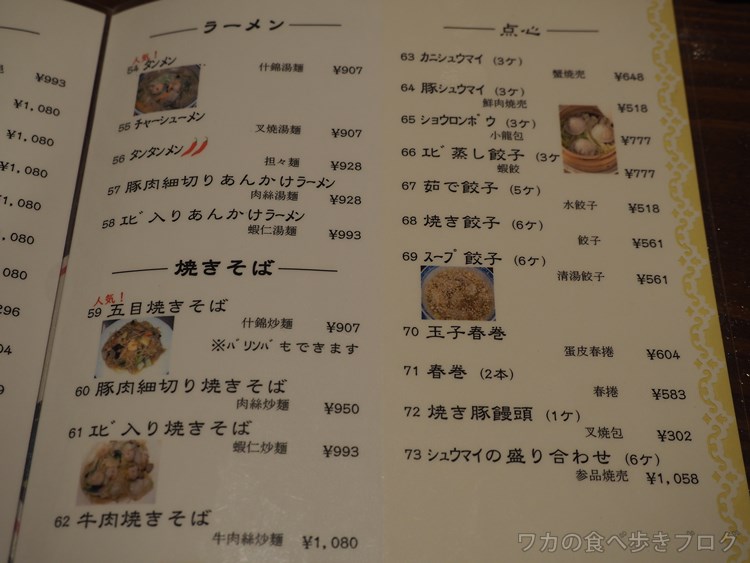 ¥993
¥1,080
¥1,080
¥1,080
¥1,080
ラーメン
人気!
54 タンメン
什錦湯麺 ¥907
55 チャーシューメン
叉焼湯麺 ¥907
56 タンタンメン
担々麺 ¥928
57 豚肉細切りあんかけラーメン
肉絲湯麺 ¥928
58 エビ入りあんかけラーメン
蝦仁湯麺 ¥993
焼きそば
人気!
59 五目焼きそば
什錦炒麺 ¥907
※バリンバもできます
60 豚肉細切り焼きそば
肉絲炒麺 ¥950
61 エビ入り焼きそば
蝦仁炒麺 ¥993
62 牛肉焼きそば
牛肉絲炒麺 ¥1,080
点心
63 カニシュウマイ (3ケ)
蟹焼売 ¥648
64 豚シュウマイ (3ケ)
鮮肉焼売 ¥518
65 ショウロンポウ (3ケ)
小龍包 ¥777
66 エビ蒸し餃子 (3ケ
蝦餃 ¥777
67 茹で餃子 (5ケ)
水餃子 ¥518
68 焼き餃子 (6ケ)
餃子 ¥561
69 スープ餃子 (6ケ)
清湯餃子 ¥561
70 玉子春巻
蛋皮春捲 ¥604
71 春巻 (2本)
春捲 ¥583
72 焼き豚饅頭 (1ケ)
叉焼包 ¥302
73 シュウマイの盛り合わせ (6ケ)
参品焼売 ¥1,058
ワカの食べ歩きブログ